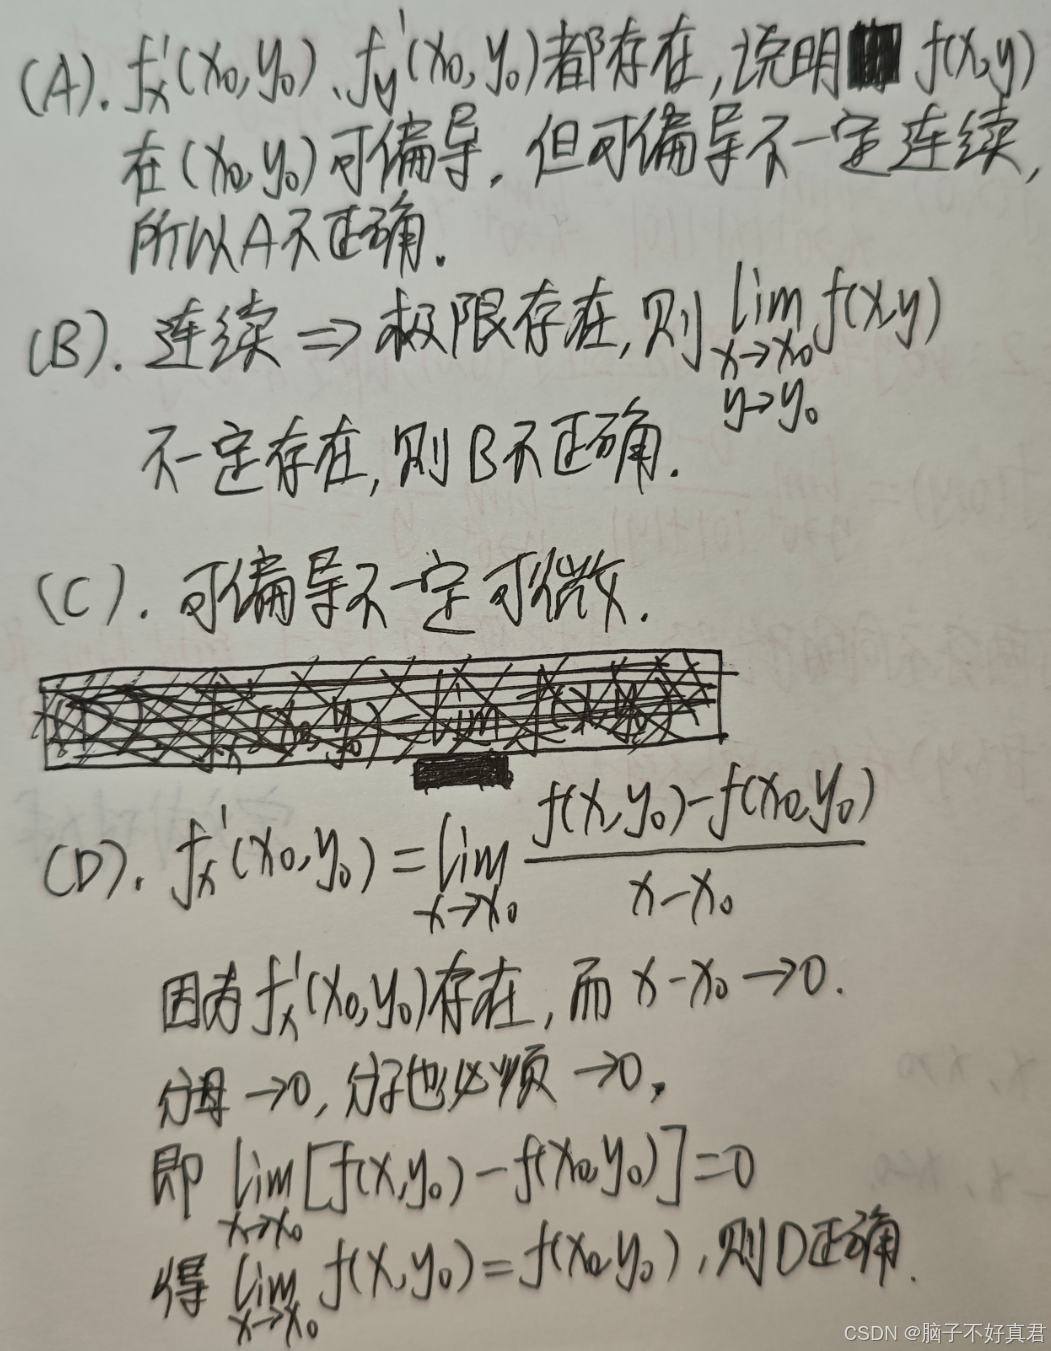 (A). f'x(x₀,y₀)、f'y(x₀,y₀)都存在,说明 f(x,y)
在(x₀,y₀)可偏导. 但可偏导不一定连续,
所以A不正确.
(B). 连续⇒极限存在,则 lim f(x,y)
x→x₀
y→y₀
不一定存在,则B不正确.
(C). 可偏导不一定可微.
(D). f'x(x₀,y₀)=lim f(x,y₀)-f(x₀,y₀)
x→x₀ x-x₀
因为f'x(x₀,y₀)存在,而 x-x₀→0.
分母→0,分子也必须→0,
即 lim[f(x,y₀)-f(x₀,y₀)]=0
x→x₀
得 lim f(x,y₀)=f(x₀,y₀),则D正确.
x→x₀
CSDN @脑子不好真君